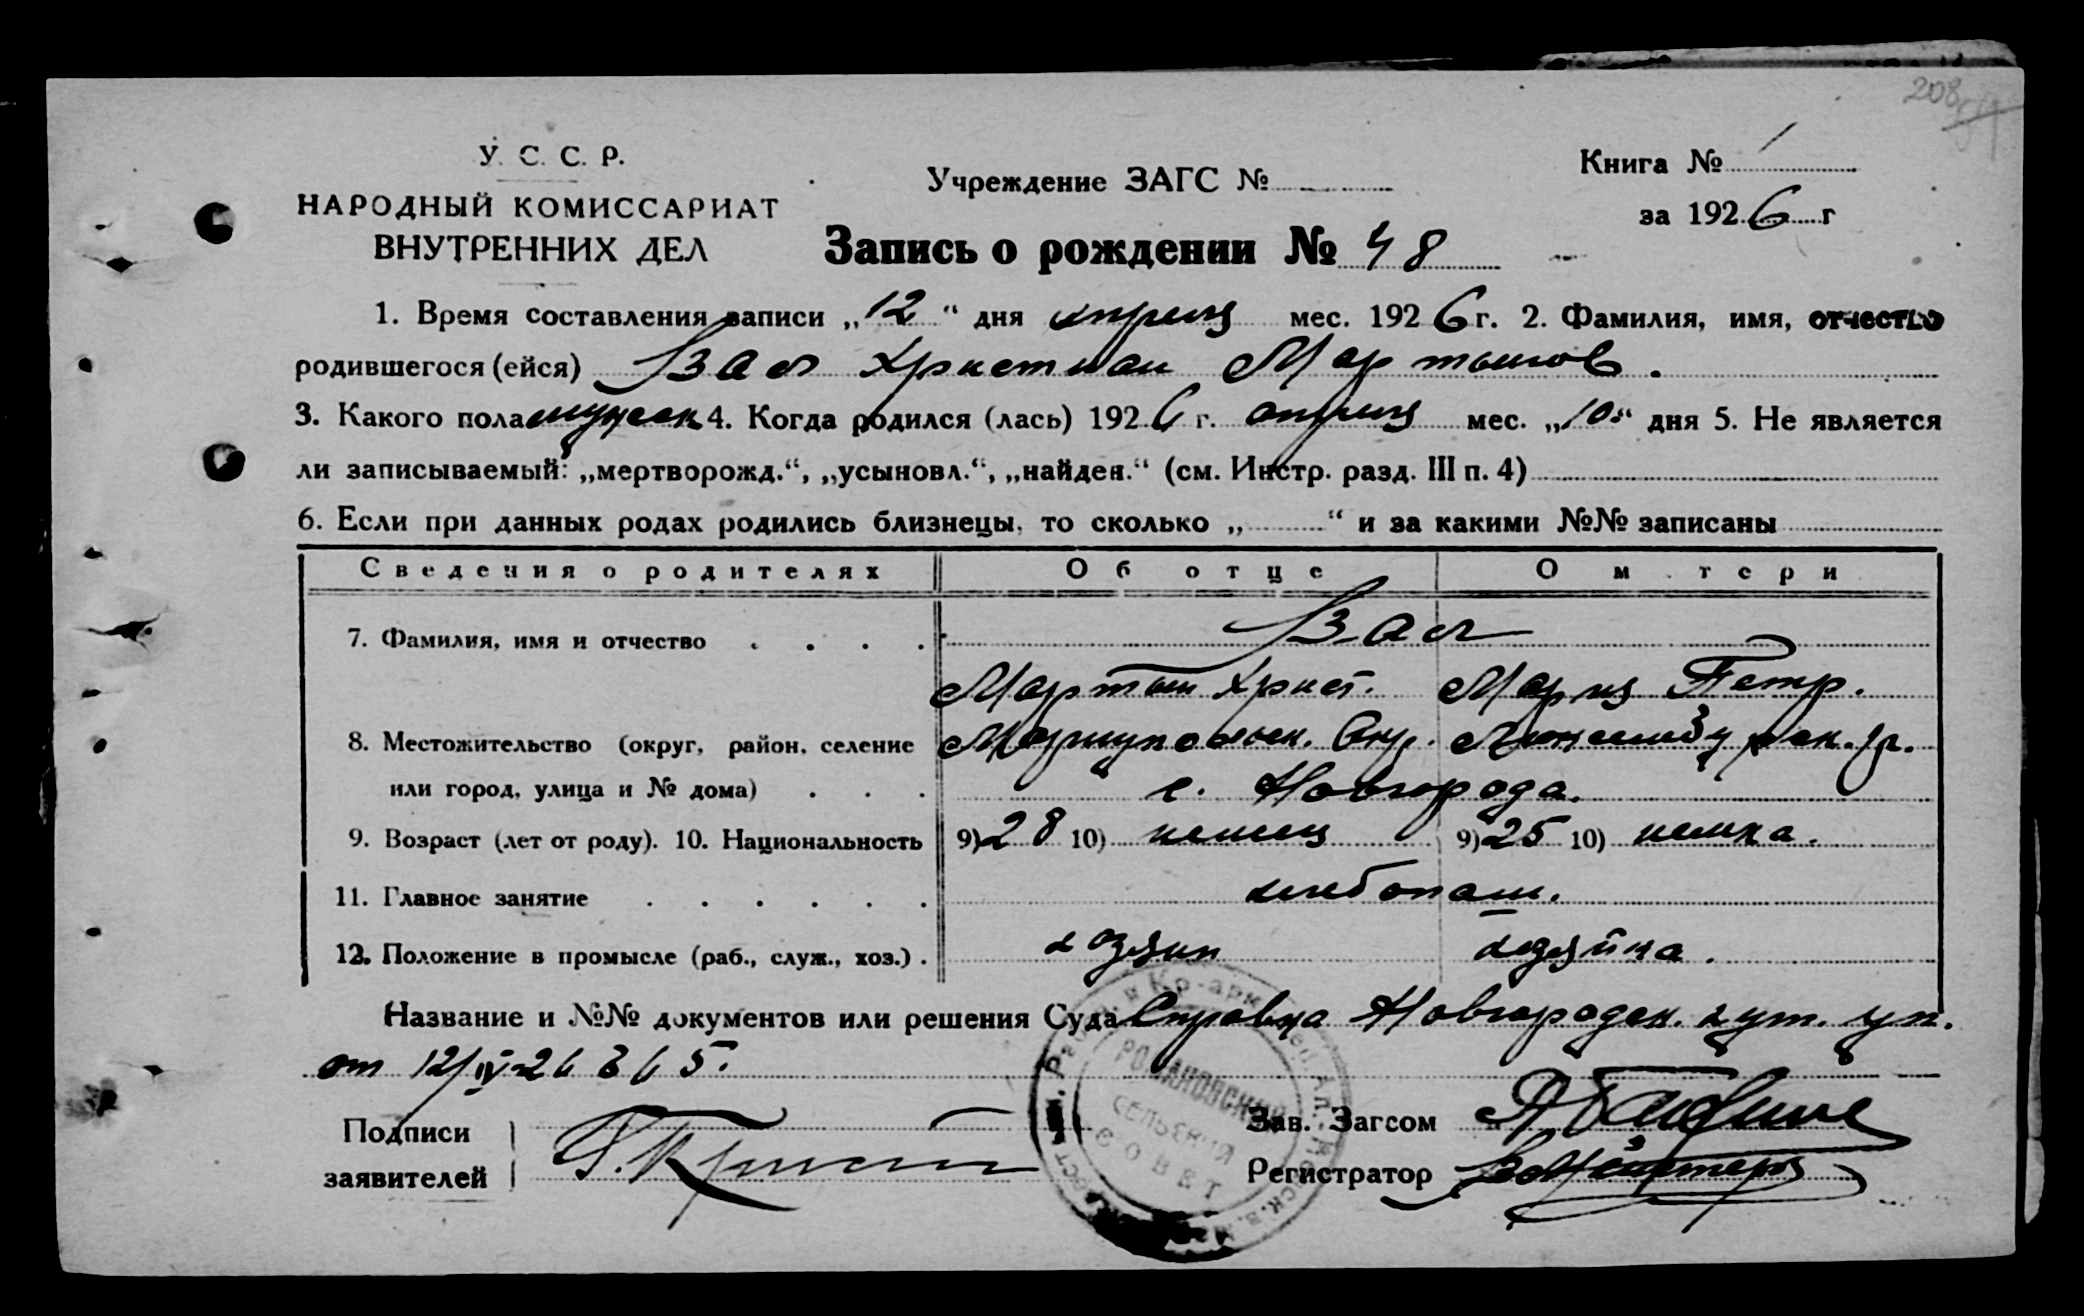 У. С. С. Р.
НАРОДНЫЙ КОМИССАРИАТ
ВНУТРЕННИХ ДЕЛ
Учреждение ЗАГС №
Книга № 1
за 1926 г
Запись о рождении № 48
1. Время составления записи „12“ дня апреля мес. 1926 г. 2. Фамилия, имя, отчество
родившегося (ейся) Зап Христиан Мартынов.
3. Какого пола мужск 4. Когда родился (лась) 1926 г. апреля мес. „10“ дня 5. Не является
ли записываемый: „мертворожд.“, „усыновл.“, „найден.“ (см. Инстр. разд. III п. 4)
6. Если при данных родах родились близнецы, то сколько „ “ и за какими №№ записаны
Сведения о родителях Об отце О м тери
7. Фамилия, имя и отчество . . . . Зап
Мартын Христ. Мария Петр.
8. Местожительство (округ, район, селение Мариупольск. Окр. Люксембургск. р.
или город, улица и № дома) . . . с. Новгорода.
9. Возраст (лет от роду). 10. Национальность 9) 28 10) немец 9) 25 10) немка.
11. Главное занятие . . . . . . хлебопаш.
12. Положение в промысле (раб., служ., хоз.) . хозяин хозяйка.
Название и №№ документов или решения Суда Справка Новгородск. хут. уп.
от 12/IV-26 365.
Подписи
заявителей
Зав. Загсом
Регистратор
РОМАНОВСКИЙ
СЕЛЬСКИЙ
СОВЕТ